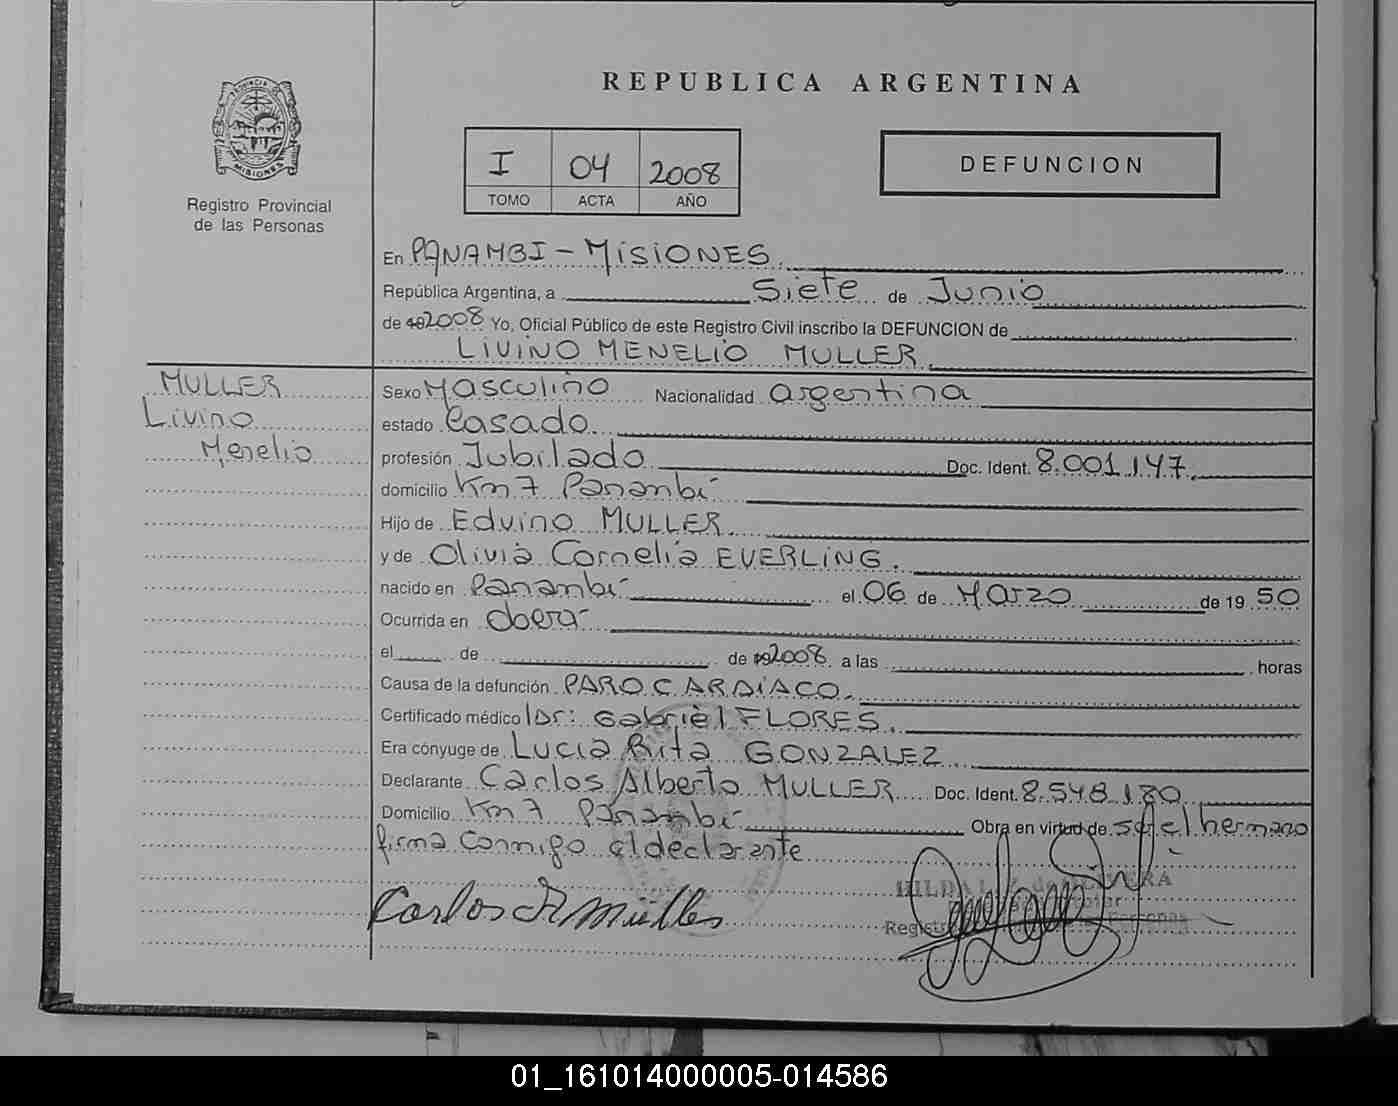 REPUBLICA ARGENTINA
PROVINCIA DE
MISIONES
Registro Provincial
de las Personas
I 04 2008
TOMO ACTA AÑO
DEFUNCION
En PANAMBI - MISIONES.
República Argentina, a Siete de Junio
de 2008 Yo, Oficial Público de este Registro Civil inscribo la DEFUNCION de
LIVINO MENELIO MULLER.
MULLER
Livino
Menelio
Sexo Masculino Nacionalidad argentina
estado Casado.
profesión Jubilado Doc. Ident. 8.001.147.
domicilio Km 7 Panambí
Hijo de Edvino MULLER.
y de Olivia Cornelia EVERLING.
nacido en Panambí el 06 de Marzo de 19 50
Ocurrida en Oberá
el de de 2008 a las horas
Causa de la defunción PARO CARDIACO.
Certificado médico Dr: Gabriel FLORES.
Era cónyuge de Lucia Rita GONZALEZ
Declarante Carlos Alberto MULLER Doc. Ident. 8.548.180
Domicilio Km 7 Panambí Obra en virtud de ser el hermano
firma conmigo el declarante
Carlos A Müller
HILDA
Personas
01_161014000005-014586